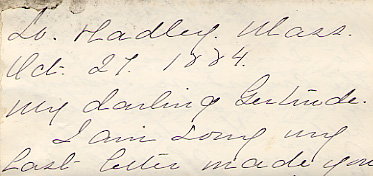 So. Hadley. Mass.
Oct. 27. 1884.
My darling Gertrude.
I am sorry my
last letter made you